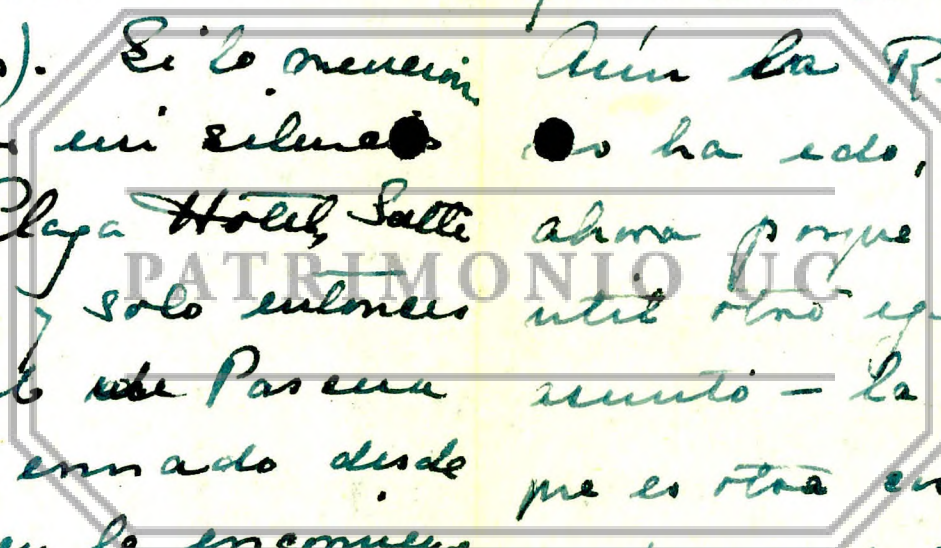 Si lo mencion
mi silencio
Plaza Hotel, Suite
y solo entonces
de Pascua
enviado desde
le
Aún la R.
no ha ido,
ahora porque
util otro
asunto — la
que es otra
PATRIMONIO UC